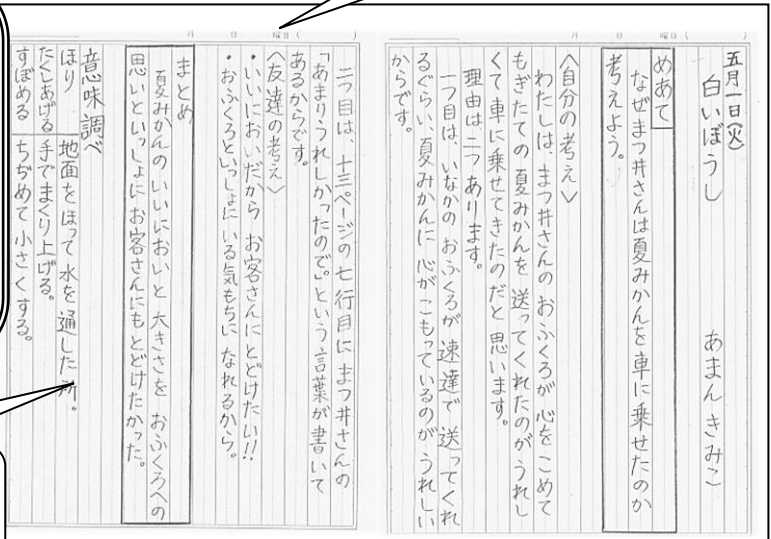 五月一日(火)
白いぼうし　あまんきみこ
めあて
なぜまつ井さんは夏みかんを車に乗せたのか
考えよう。
〈自分の考え〉
わたしは、まつ井さんのおふくろが心をこめて
もぎたての夏みかんを送ってくれたのがうれし
くて車に乗せてきたのだと思います。
理由は二つあります。
一つ目は、いなかのおふくろが速達で送ってくれ
るぐらい、夏みかんに心がこもっているのがうれしい
からです。
月　日　曜日(　)
二つ目は、十三ページの七行目にまつ井さんの
「あまりうれしかったので。」という言葉が書いて
あるからです。
〈友達の考え〉
・いいにおいだからお客さんにとどけたい!!
・おふくろといっしょにいる気もちになれるから。
まとめ
夏みかんのいいにおいと大きさを おふくろへの
思いといっしょにお客さんにもとどけたかった。
意味調べ
ほり　地面をほって水を通した所。
たくしあげる　手でまくり上げる。
すぼめる　ちぢめて小さくする。
月　日　曜日(　)